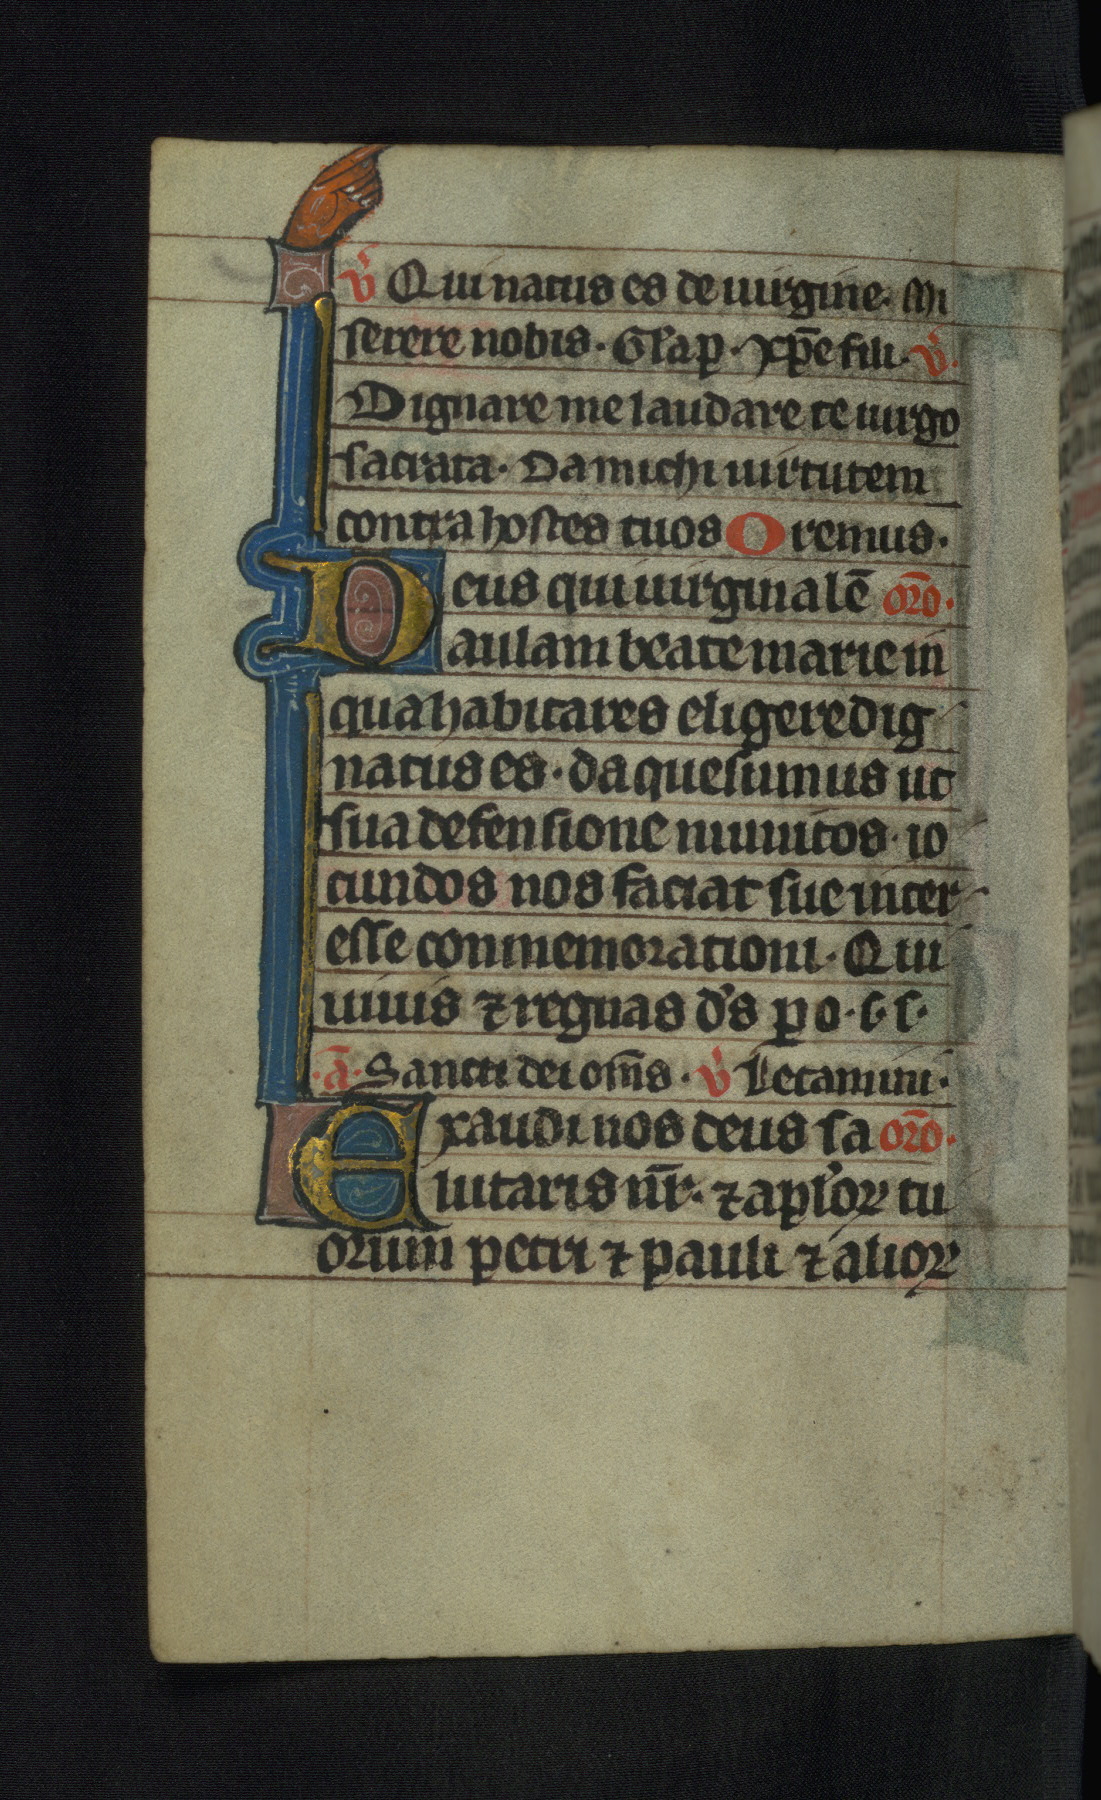 v̄ Qui natus es de uirgine. Mi
serere nobis. Gl'a p̱. xp̄e fili. v̄.
Dignare me laudare te uirgo
sacrata. Da michi uirtutem
contra hostes tuos Oremus.
Deus qui uirginalē or̄o.
aulam beate marie in
qua habitares eligere dig
natus es. da quesumus ut
sua defensione munitos. io
cundos nos faciat sue inter
esse conmemorationi. Qui
uiuis ⁊ regnas d's p̱ o. s. s.
.ā. Sancti dei om̄s. v̄ Letamini.
Exaudi nos deus sa or̄o.
lutaris nr̄. ⁊ apl'oꝝ tu
orum petri ⁊ pauli ⁊ alioꝝ